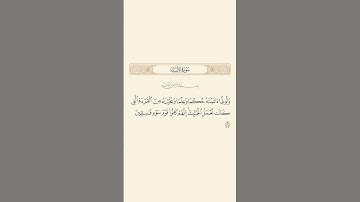 سورة الأنبياء
بسم الله الرحمن الرحيم
وَلُوطًا ءَاتَيْنَٰهُ حُكْمًا وَعِلْمًا وَنَجَّيْنَٰهُ مِنَ ٱلْقَرْيَةِ ٱلَّتِى
كَانَت تَّعْمَلُ ٱلْخَبَٰٓئِثَ إِنَّهُمْ كَانُوا۟ قَوْمَ سَوْءٍ فَٰسِقِينَ